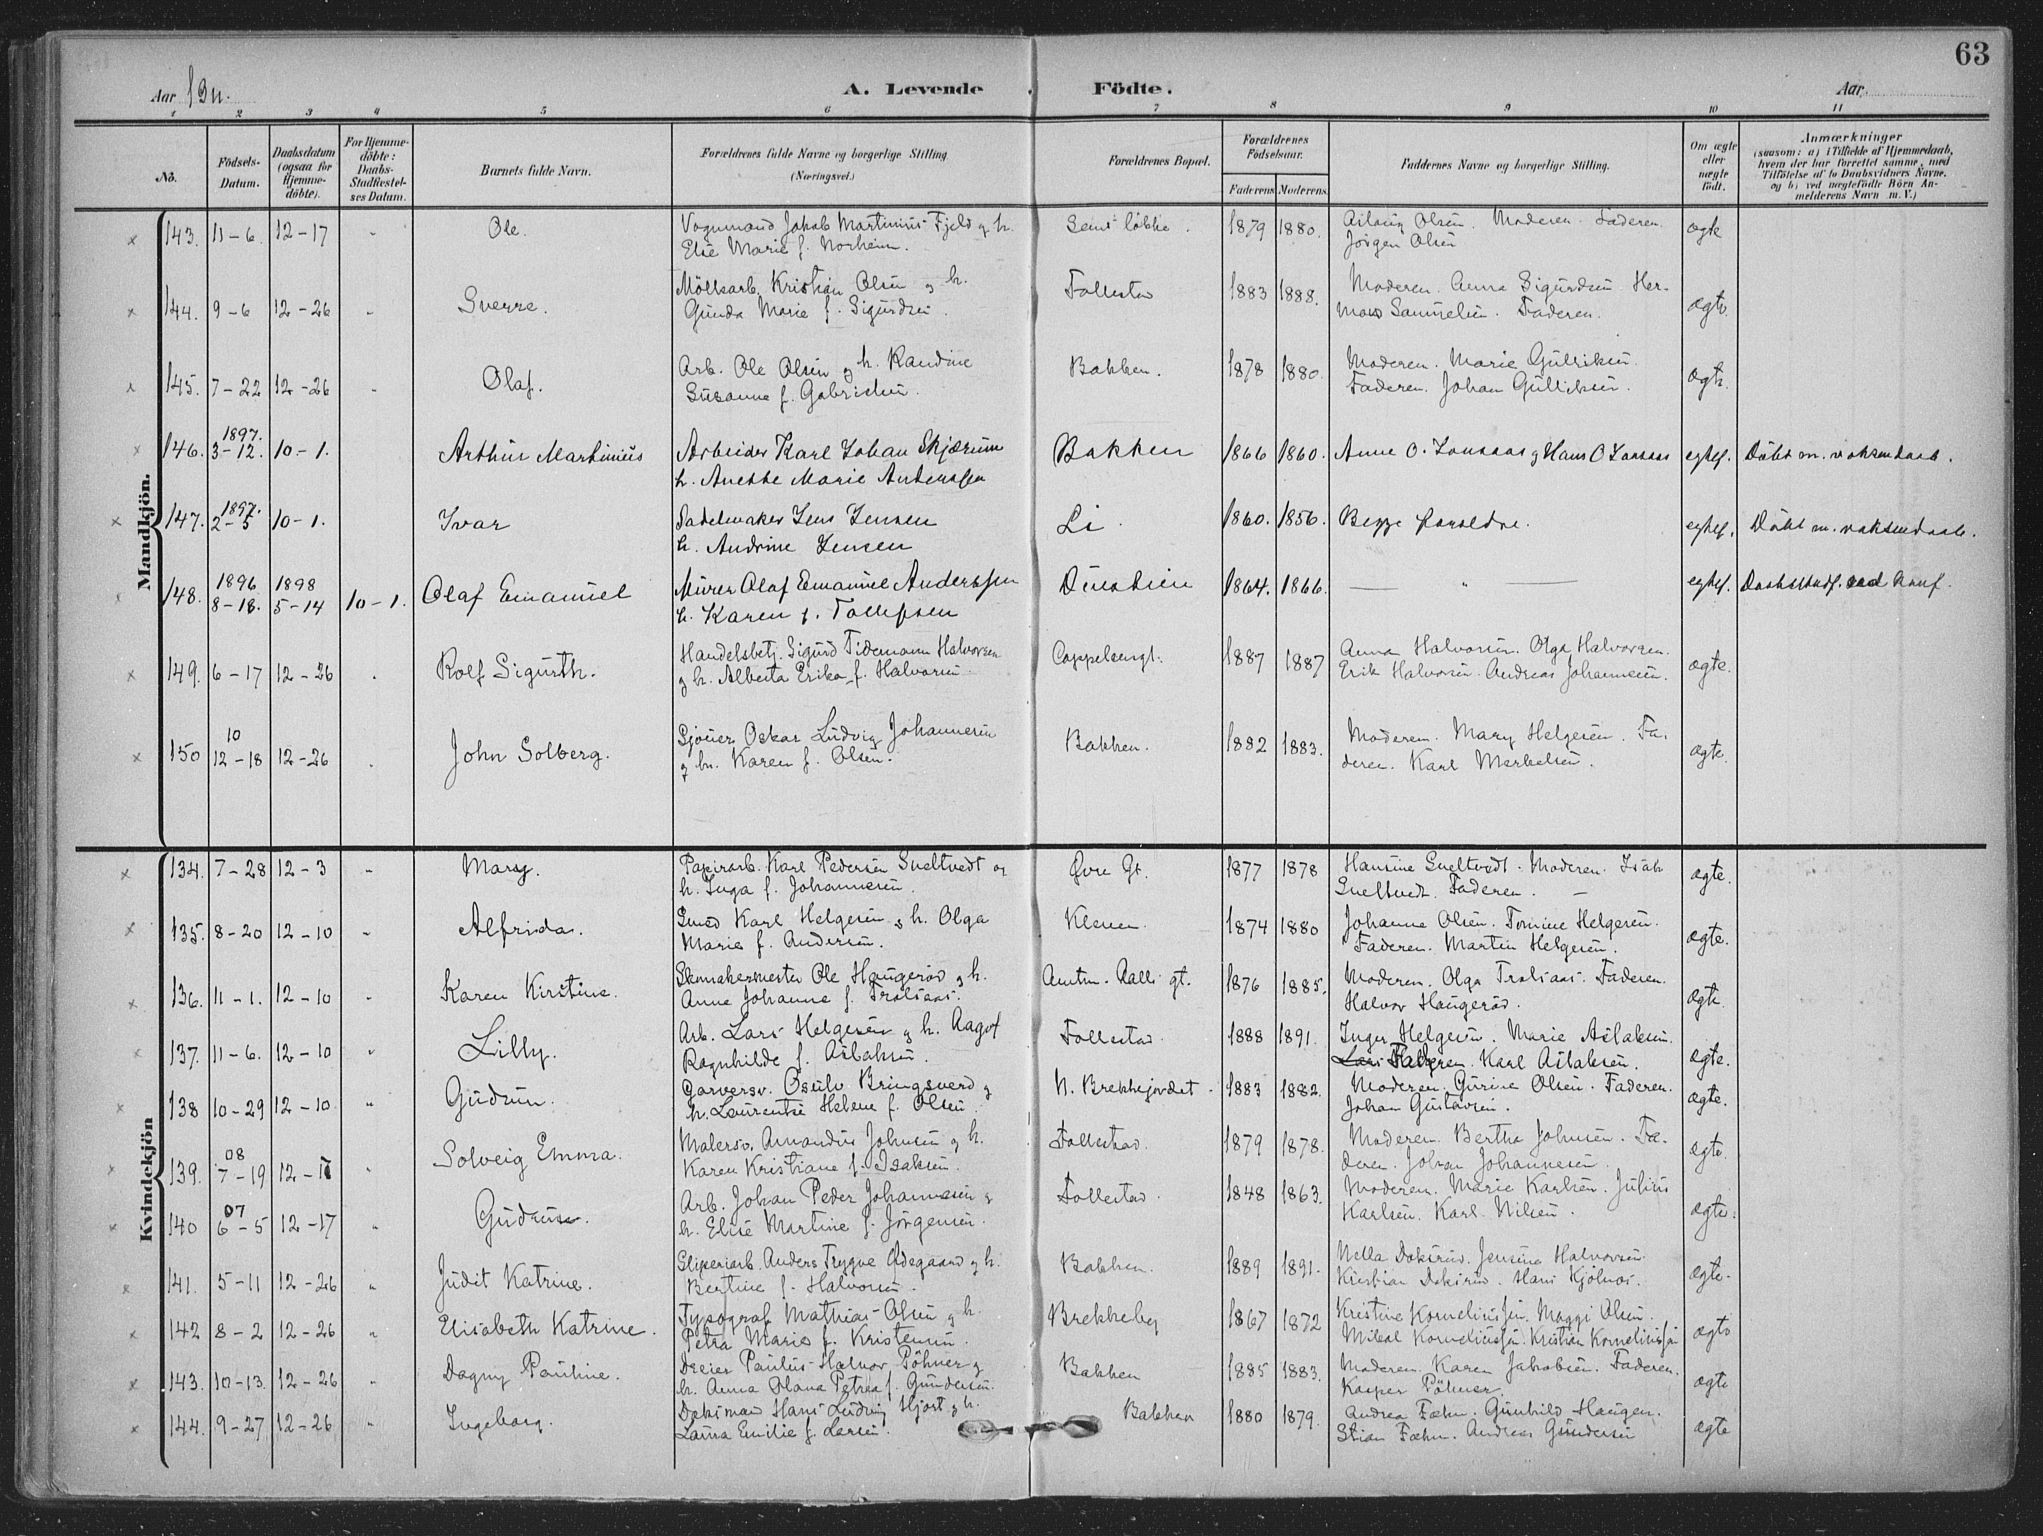 63
Aar 1911. A. Levende Födte. Aar
1 2 3 4 5 6 7 8 9 10 11
No. Födsels-Datum. Daabsdatum (ogsaa for Hjemme-döbte). For Hjemme-döbte: Daabs-Stadfæstel-ses Datum. Barnets fulde Navn. Forældrenes fulde Navne og borgerlige Stilling (Næringsvei.) Forældrenes Bopæl. Forældrenes Födselsaar. Faderens Moderens Faddernes Navne og borgerlige Stilling. Om ægte eller uægte födt. Anmærkninger (saasom: a) i Tilfælde af Hjemmedaab, hvem der har forrettet samme, med Tilföielse af to Daabsvidners Navne, og b) ved uægtefödte Börn An-melderens Navn m. V.)
Mandkjön.
143. 11-6. 12-17 " Ole. Vognmand Jakob Martinius Fjeld g. h. 1879 1880. Aslaug Olsen. Moderen. Faderen. ægte
Elise Marie f. Norheim. Jörgen Olsen
144. 9-6 12-26 " Sverre. Kristian Olsen og h. Follestad 1883 1888. Moderen. Anna Sigurdsen. Her-
Gunda Marie f. Sigurdsen. Samuelsen. Faderen. ægte.
145. 7-22 12-26 " Olaf. Arb. Ole Olsen og h. Randine Bakken. 1878 1880. Moderen. Marie Gulliksen.
Susanne f. Gabrielsen. Faderen. Johan Gulliksen. ægte.
146. 1897. 3-12. 10-1. Arthur Martinius Arbeider Karl Johan Skjærum Bakken 1866 1860. Anne O. Jonsaas g Hans O Jonsaas egtef. Döbt m. voksendaab.
h. Anette Marie Anderssen
147. 1897. 2-5 10-1. Ivar Sadelmaker Jens Jensen Li. 1860. 1856. Begge foreldre. egtef. Döbt m. voksendaab.
h. Andrine Jensen
148. 1896 8-18. 1898 5-14 10-1. Olaf Emanuel Murer Olaf Emanuel Anderssen 1864. 1866. " egtef. Daabsstadf. ved konf.
h. Karen f. Tollefsen
149. 6-17 12-26 " Rolf Sigurth. Handelsbetj. Sigurd Tidemann Halvorsen Coppelsengt. 1887 1887 Anna Halvorsen. Olga Halvorsen.
g h. Alberta Erika f. Halvorsen Erik Halvorsen. Andreas Johannesen. ægte.
150 10 12-18 12-26 " John Solberg. Oskar Ludvig Johannesen Bakken. 1882 1883. Moderen. Mary Helgesen. Fa-
g h. Karen f. Olsen. deren. Karl Mikkelsen. ægte.
Kvindekjön
134. 7-28 12-3 " Mary. Papirarb. Karl Pedersen Sneltvedt og Övre Gt. 1877 1878 Hansine Sneltvedt. Moderen. Isak
h. Inga f. Johannesen. Sneltvedt. Faderen. ægte.
135. 8-20 12-10 " Alfrida. Smed Karl Helgesen g h. Olga Kleven. 1874 1880 Johanne Olsen. Tomine Helgesen.
Marie f. Andersen. Faderen. Martin Helgesen. ægte.
136. 11-1. 12-10 " Karen Kirstine. Skomakermester Ole Haugeröd g h. Amtm. Aalls gt. 1876 1885. Moderen. Olga Trolsaas. Faderen.
Anna Johanne f. Trolsaas. Halvor Haugeröd. ægte.
137. 11-6. 12-10 " Lilly. Arb. Lars Helgesen g h. Aagot Follestad. 1888 1891. Inger Helgesen. Marie Aslaksen.
Ragnhilde f. Aslaksen. Faderen. Karl Aslaksen. ægte.
138 10-29 12-10 " Gudrun. Garversv. Osulv Bringsverd g N. Brekkejordet. 1883 1882. Moderen. Gurine Olsen. Faderen.
h. Laurentse Helene f. Olsen. Johan Gustavsen. ægte.
139. 08 7-19 12-17 " Solveig Emma. Malersv. Amandus Johnsen g h. Follestad. 1879 1878. Moderen. Bertha Johnsen. Fa-
Karen Kristiane f. Isaksen. deren. Johan Johannesen. ægte.
140 07 6-5 12-17 " Gudrun. Arb. Johan Peder Johannesen g Follestad. 1848 1863. Moderen. Marie Karlsen. Julius
h. Elise Martine f. Jörgensen. Karlsen. Karl Nilsen. ægte.
141. 5-11 12-26 " Judit Katrine. Sliperiarb. Anders Trygve Ödegaard g h. Bakken. 1889 1891. Nella Doksrud. Jensine Halvorsen
Bertine f. Halvorsen. Kristian Doksrud. Hans Kjölnes. ægte.
142 8-2 12-26 " Elisabeth Katrine. Typograf Mathias Olsen g h. Brekkeby 1867 1872 Kristine Korneliussen. Maggi Olsen.
Petra Marie f. Kristensen. Mikal Korneliussen. Kristian Korneliussen ægte
143. 10-13. 12-26 " Dagny Pauline. Dreier Paulus Halvor Pöhner g Bakken 1885 1883. Moderen. Karen Jakobsen. Faderen.
h. Anna Olana Petrea f. Gundersen. Kasper Pöhner. ægte
144. 9-27 12-26 " Ingeborg. Doksmand Hans Ludvig Hjort g h. Bakken 1880 1879. Andrea Fæhn. Gunhild Haugen.
Laura Emilie f. Larsen. Stian Fæhn. Andreas Gundersen ægte